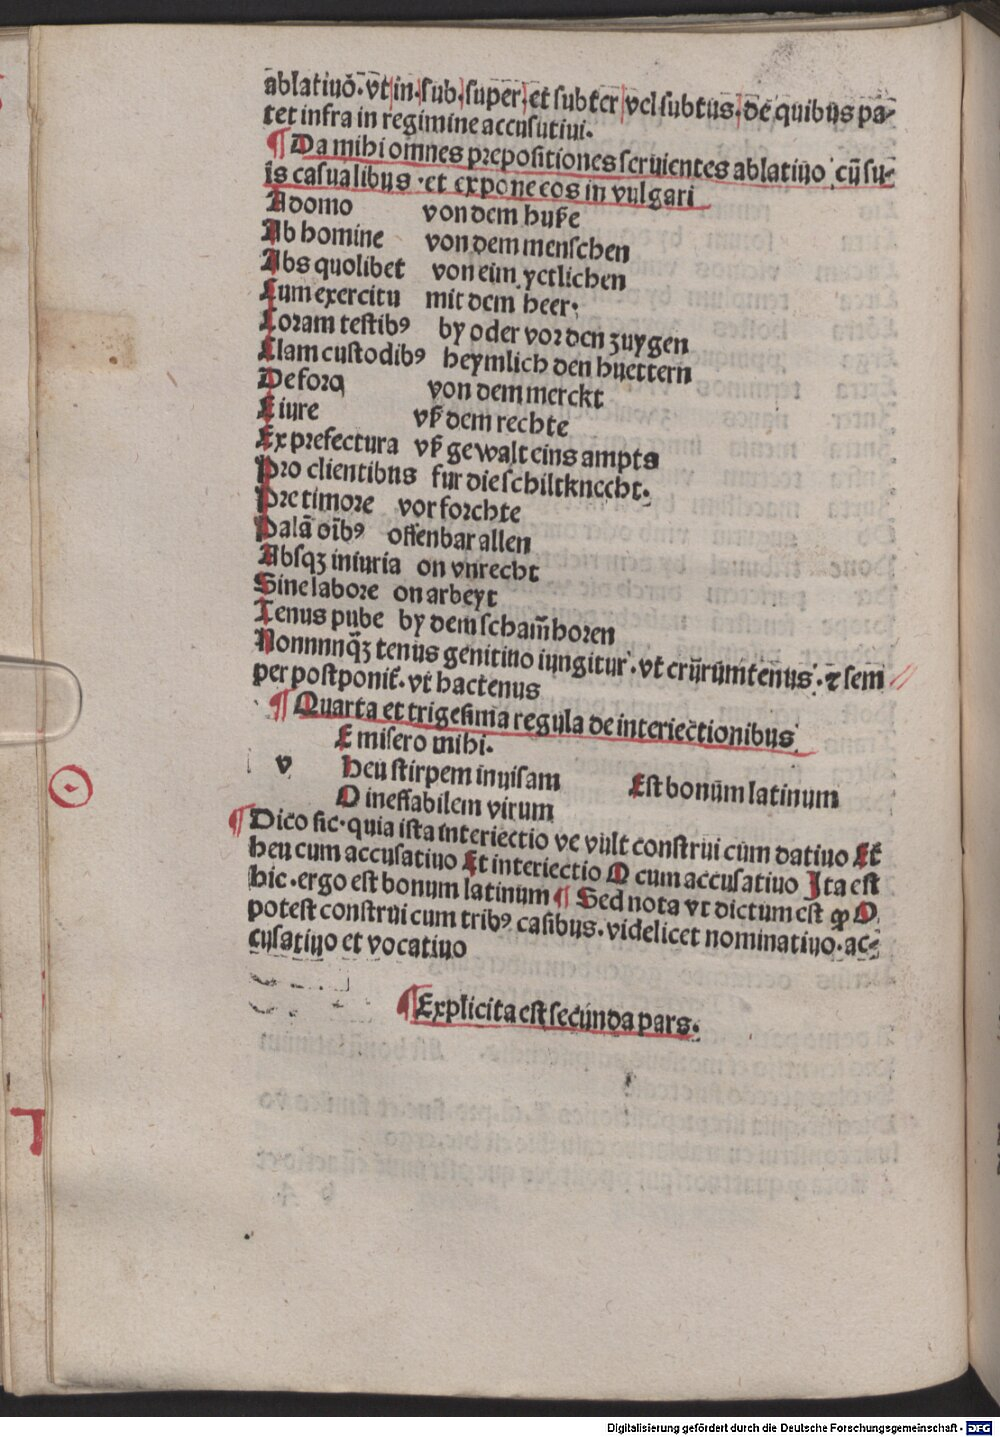 ablatiuō. vt in. sub. super. et subter vel subtus. de quibus pa-
tet infra in regimine accusutiui.
¶ Da mihi omnes prepositiones seruientes ablatiuo cū su-
is casualibus . et expone eos in vulgari
A domo von dem huße
Ab homine von dem menschen
Abs quolibet von eim yetlichen
Cum exercitu mit dem heer.
Coram testibꝰ by oder vor den zuygen
Clam custodibꝰ heymlich den huettern
De foro von dem merckt
E iure vß dem rechte
Ex prefectura vß gewalt eins ampts
Pro clientibus fur die schiltknecht.
Pre timore vor forchte
Palā oībꝰ offenbar allen
Absqꝫ iniuria on vnrecht
Sine labore on arbeyt
Tenus pube by dem scham̄horen
Nonnnnq̄ꝫ tenus genitiuo iungitur. vt crurumtenus. ⁊ sem
per postponit̄. vt hactenus
¶ Quarta et trigesima regula de interiectionibus
E misero mihi.
v Heu stirpem inuisam Est bonūm latinum
O ineffabilem virum
¶ Dico sic. quia ista interiectio ve vult construi cum datiuo Et
heu cum accusatiuo Et interiectio O cum accusatiuo Ita est
hic. ergo est bonum latinum ¶ Sed nota vt dictum est ꝙ O
potest construi cum tribꝰ casibus. videlicet nominatiuo. ac-
cusatiuo et vocatiuo
¶ Explicita est secunda pars.
Digitalisierung gefördert durch die Deutsche Forschungsgemeinschaft - DFG